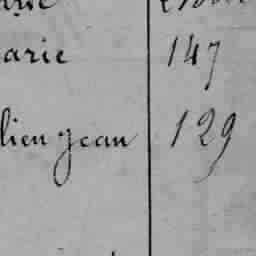 arie 147
lien Jean 129